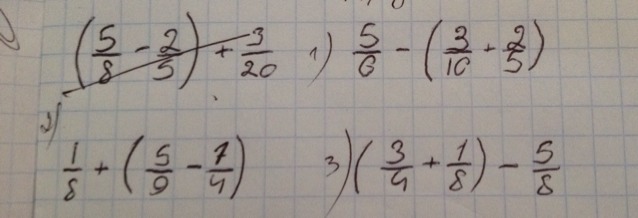 (5/8 - 2/5) + 3/20 1) 5/6 - (3/10 + 2/5)
2) 1/8 + (5/9 - 1/4) 3) (3/4 + 1/8) - 5/8